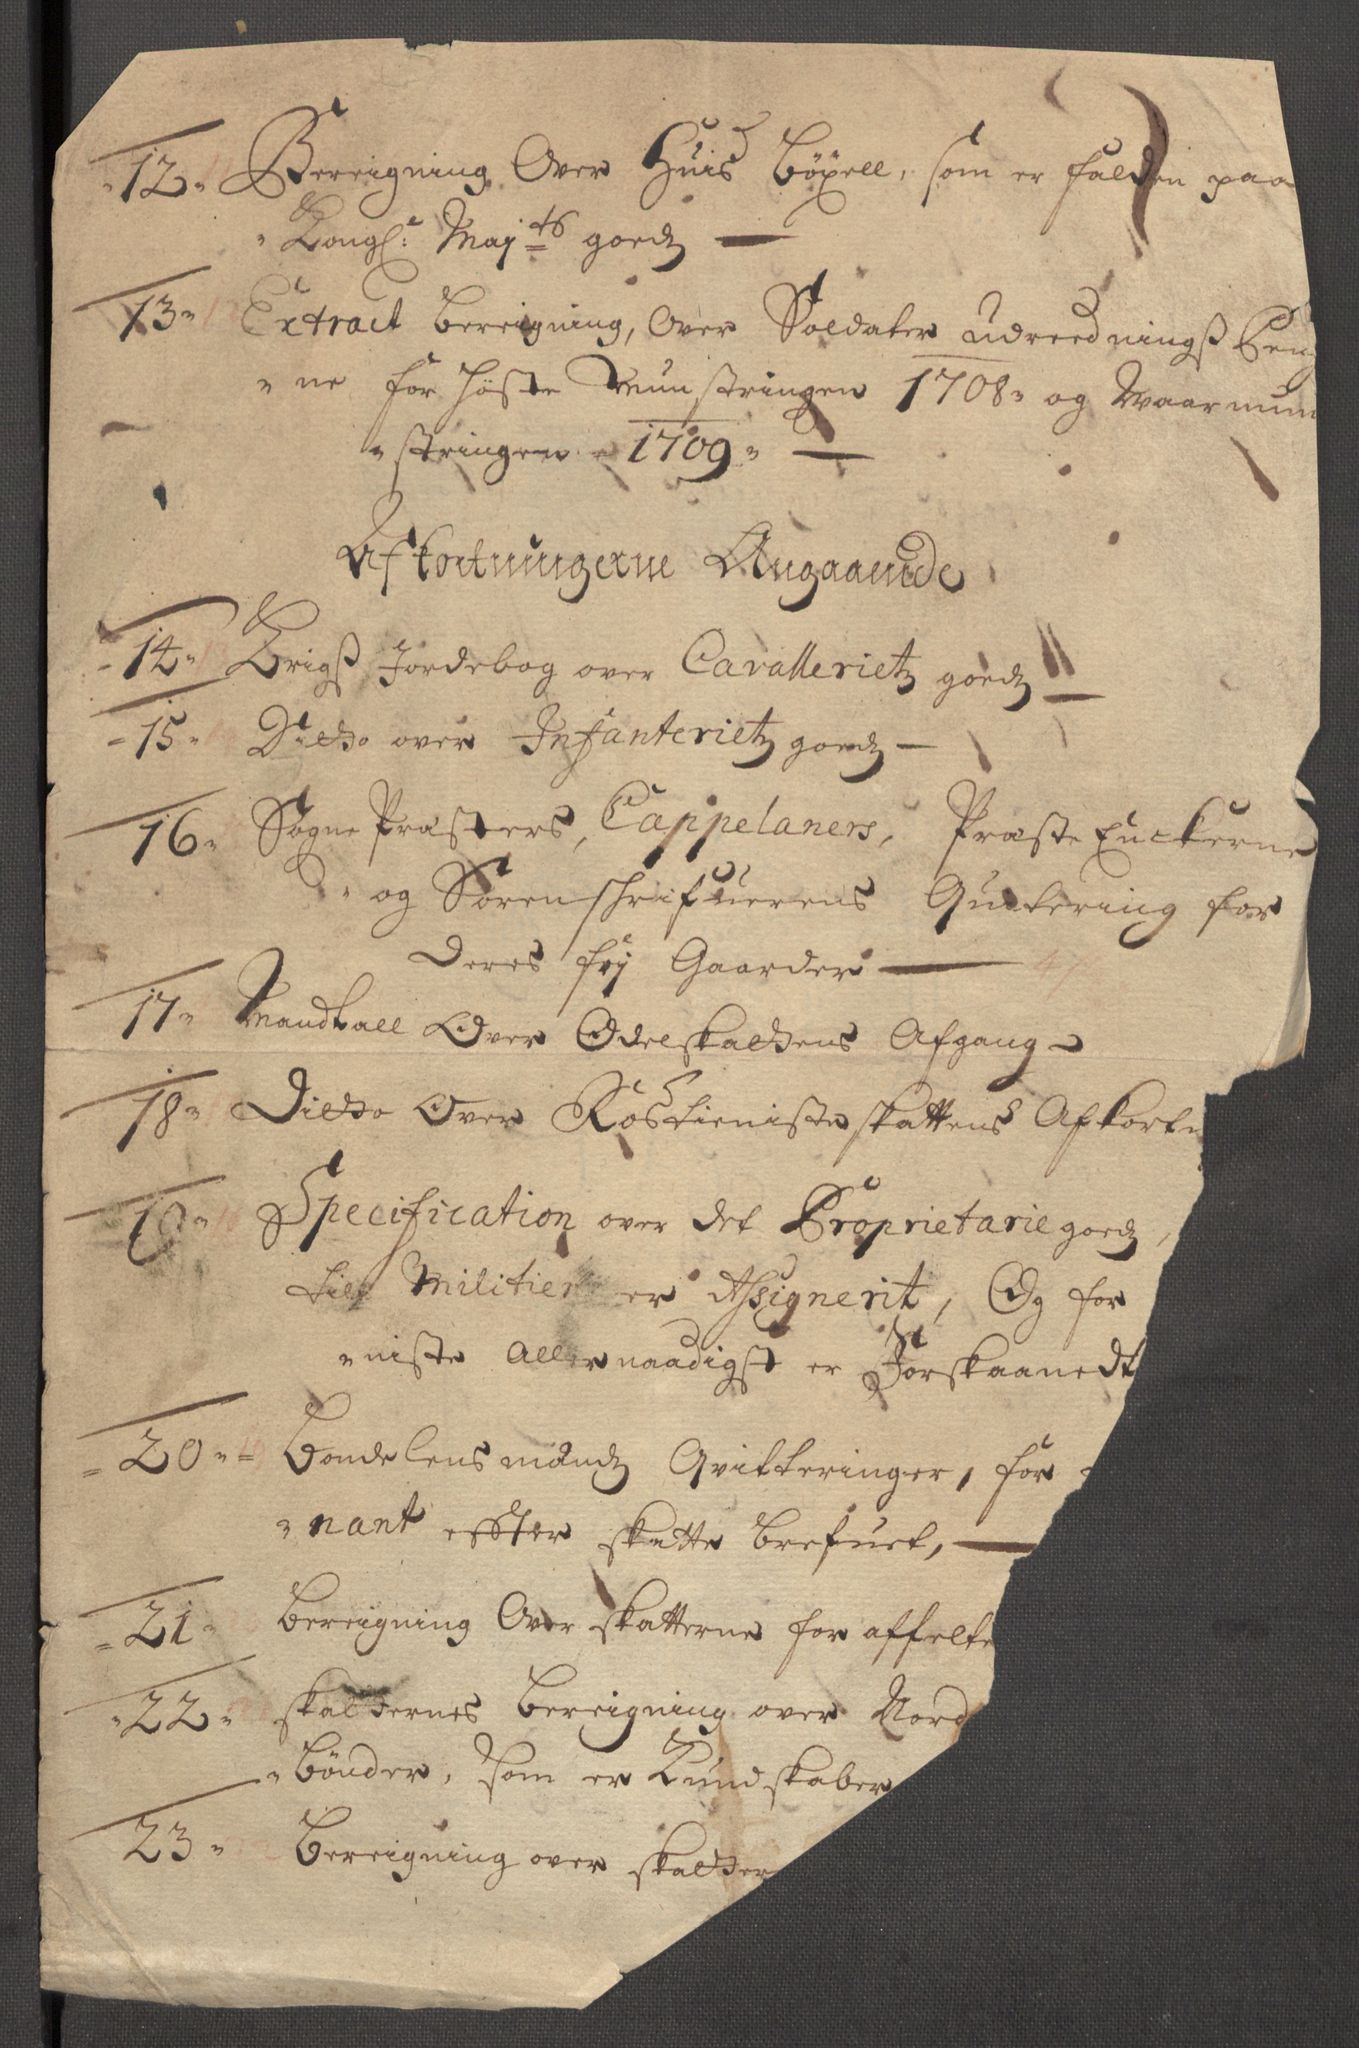 "12" Bereigning Over Huis böxell, som er falden paa
" Kongl: Maj^ts goedz —
13" Extract bereigning, Over Soldater Udreednings Peng
" ne for Höste Munstringen 1708" og Waar mun
" stringen 1709" —
Afkortningerne Angaaende
"14" Krigß Jordebog over Cavalleriets goedz —
"15" Ditto over Infanteriets goedz —
16" Sogne Præsters, Cappelaners, Præste Enckerne
" og Sorenschrifuerens Quitering for
deres frj Gaarder —
17" Mandtall Over Odelskattens Afgang —
18" Ditto Over Rostienisteskattens Afkort
19" Specification over det Proprietarie goedz,
till Militien er Assignerit, Og for
" niste allernaadigst er Forskaanedt
"20" Bondelensmændz Qvitteringer, for
" nant effter skatte brefuet, —
"21" bereigning Over skatterne for affelte
"22" skatternes bereigning over Nord
" bönder, som er Kundskaber
23" Bereigning over skatter